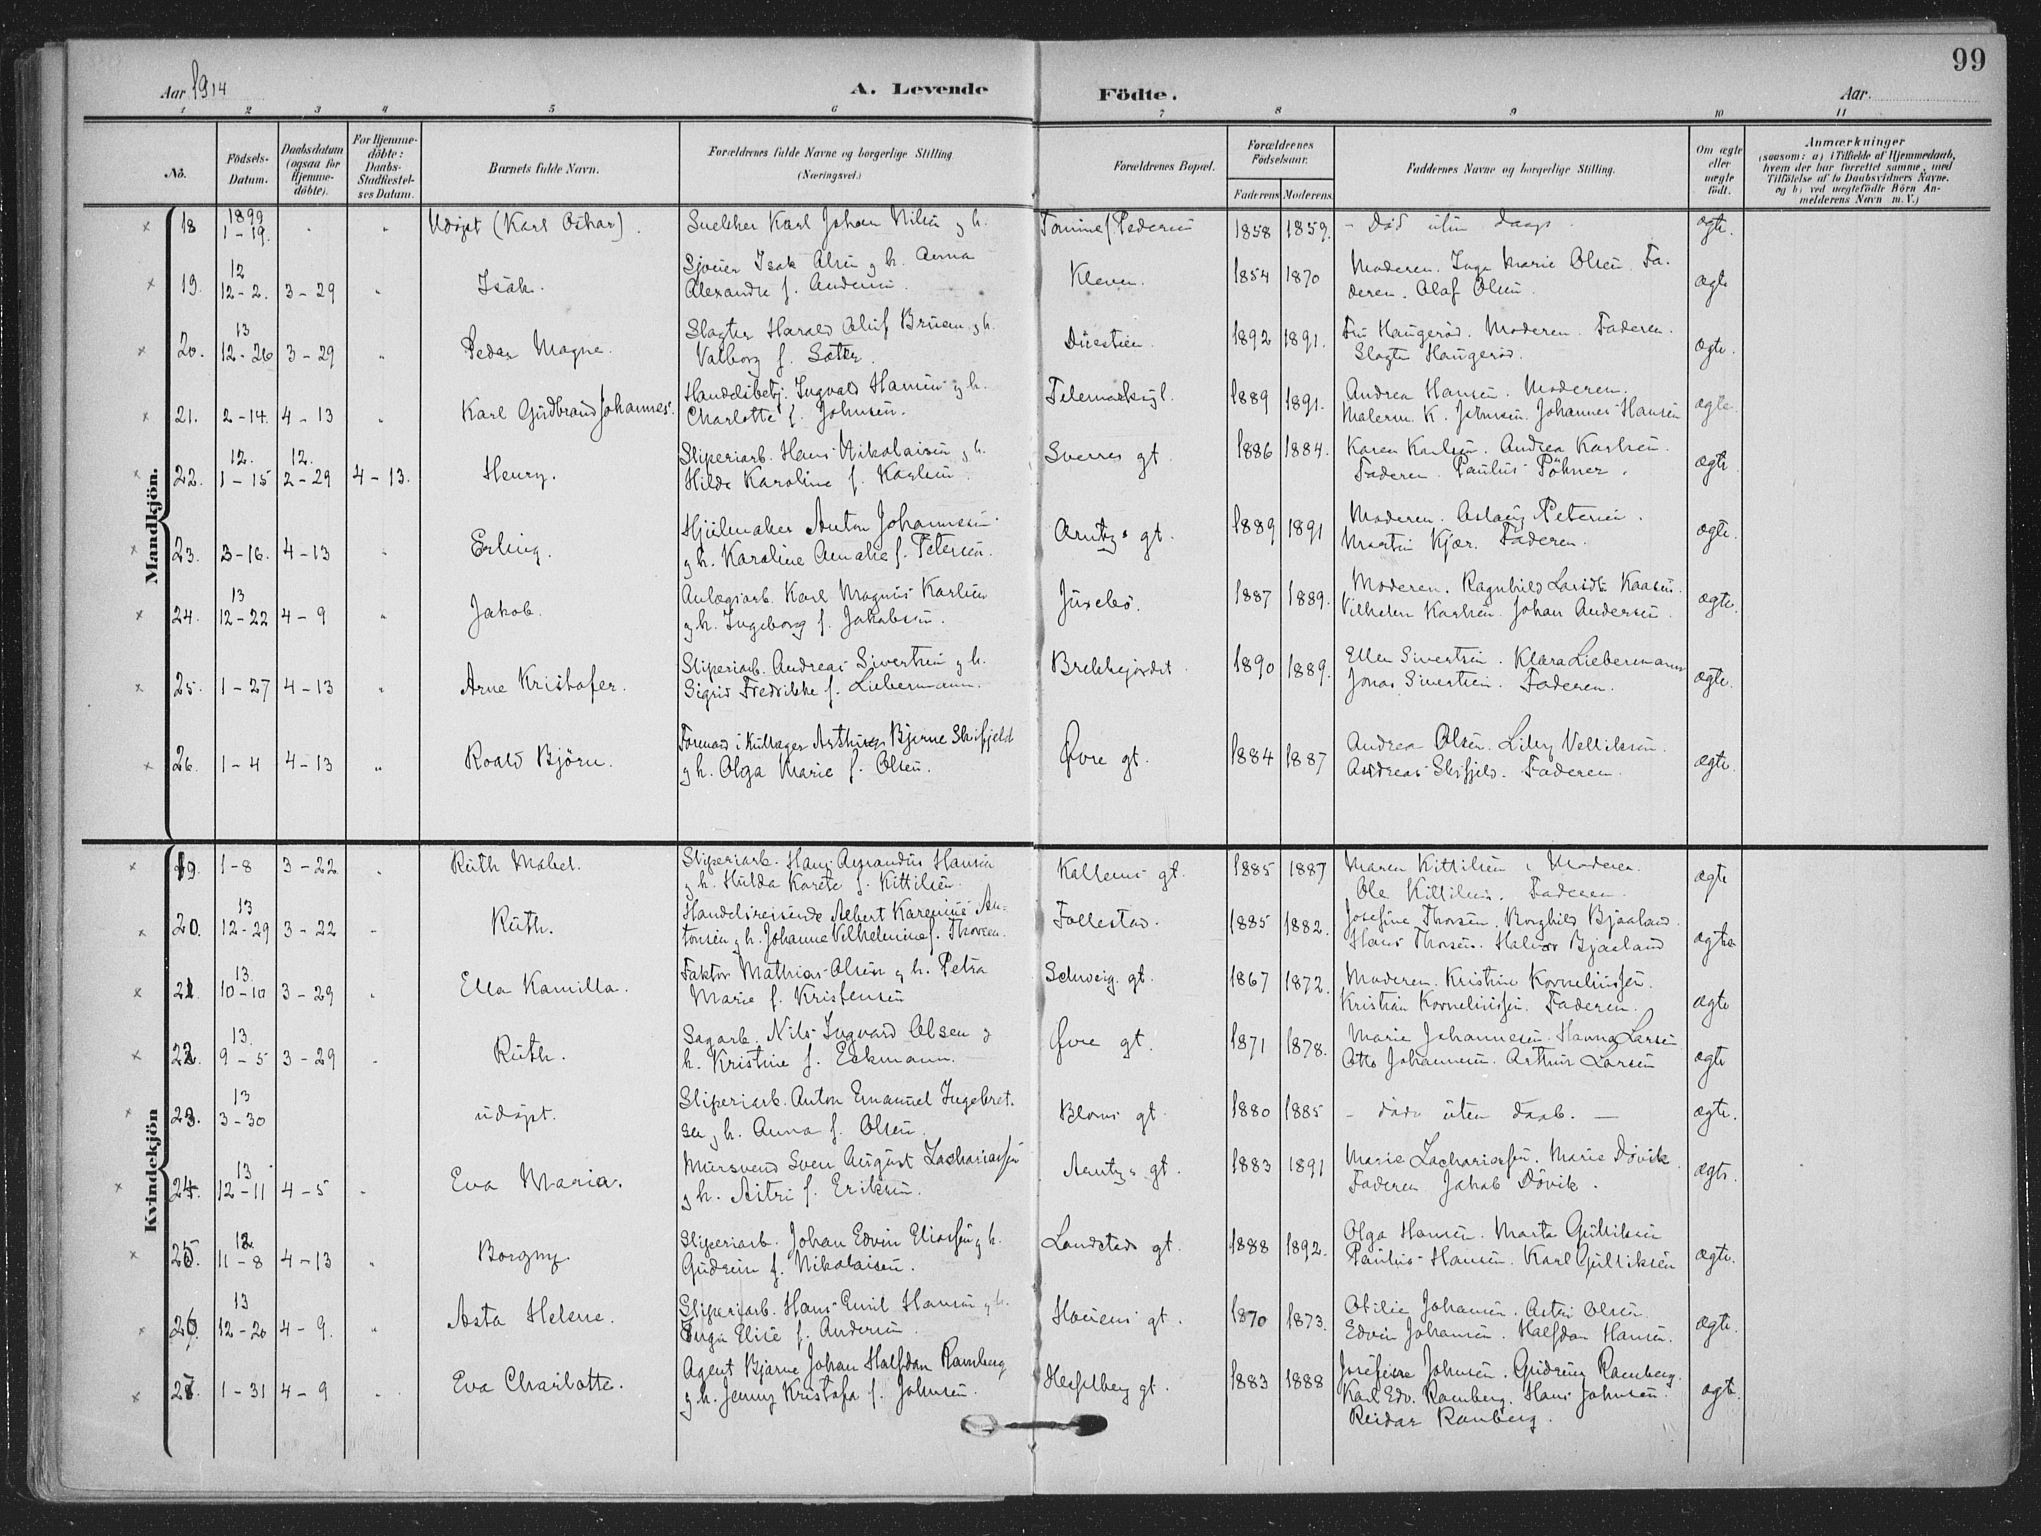 99
Aar 1914
A. Levende Födte.
Aar
1 2 3 4 5 6 7 8 9 10 11
No.
Födsels-Datum.
Daabsdatum (ogsaa for Hjemme-döbte).
For Hjemme-döbte: Daabs-Stadfæstel-ses Datum.
Barnets fulde Navn.
Forældrenes fulde Navne og borgerlige Stilling. (Næringsvei.)
Forældrenes Bopæl.
Forældrenes Födselsaar.
Faderens Moderens
Faddernes Navne og borgerlige Stilling.
Om ægte eller uægte födt.
Anmærkninger
(saasom: a) i Tilfælde af Hjemmedaab, hvem der har forrettet samme, med Tilföielse af to Daabsvidners Navne, og b) ved uægtefödte Börn An-melderens Navn m. V.)
Mandkjön.
18 1899 1-19. " " Udöpt (Karl Oskar). Snekker Karl Johan Nilsen g. h. Tomine f. Pedersen 1858 1859. - Död uten daap. ægte.
19. 12 12-2. 3-29 " Isak. Sjöm Isak Olsen g. h. Anna
Alexandra f. Andersen. Kleven. 1854 1870 Moderen. Inga Marie Olsen. Fa-
deren. Olaf Olsen. ægte
20. 13 12-26 3-29 " Peder Magne. Slagter Harald Oluf Bruem g. h.
Valborg f. Sæter. Duestien. 1892 1891. Fru Haugeröd. Moderen. Faderen.
Slagter Haugeröd. ægte.
21. 2-14. 4-13 " Karl Gudbrand Johannes. Handelsbetj. Ingvald Hansen g. h.
Charlotte f. Johnsen. Telemarksgt. 1889 1891. Andrea Hansen. Moderen.
Malerm. K. Johnsen. Johannes Hansen ægte.
22. 12. 1-15 12. 2-29 4-13. Henry. Sliperiarb. Hans Nikolaisen g. h.
Hilda Karoline f. Karlsen. Sverres gt. 1886 1884. Karen Karlsen. Andrea Karlsen.
Faderen. Paulus Pöhner. ægte.
23. 3-16. 4-13 " Erling. Hjulmaker Anton Johannesen
g. h. Karoline Amalie f. Petersen. Arntz's gt. 1889 1891 Moderen. Aslaug Petersen.
Martin Kjær. Faderen. ægte.
24. 13 12-22 4-9 " Jakob. Anlægsarb. Karl Magnus Karlsen
g. h. Ingeborg f. Jakobsen. Juxebö. 1887 1889. Moderen. Ragnhild Larsdt. Kaasen.
Vilhelm Karlsen. Johan Andersen. ægte.
25. 1-27 4-13 " Arne Kristofer. Sliperiarb. Andreas Sivertsen g. h.
Sigrid Fredrikke f. Liebermann. Brekkejordet 1890 1889. Ellen Sivertsen. Klara Liebermann
Jonas Sivertsen. Faderen. ægte.
26. 1-4 4-13 " Roald Björn. Formand i Kullager Arthur Bjerne Skifjeld
g. h. Olga Marie f. Olsen. Øvre gt. 1884 1887 Andrea Olsen. Lilly
Andreas Skifjeld. Faderen. ægte.
Kvindekjön
19. 1-8 3-22 " Ruth Mabel. Sliperiarb. Hans Amandus Hansen
g. h. Hulda Karete f. Kittilsen. Kallems gt. 1885 1887 Maren Kittilsen. Moderen.
Ole Kittilsen. Faderen. ægte
20. 13 12-29 3-22 " Ruth. Handelsreisende Albert Karenius An-
tonsen g. h. Johanne Vilhelmine f. Thorsen. Follestad. 1885 1882. Josefine Thorsen. Borghild Bjaaland.
Hans Thorsen. Halvor Bjaaland ægte
21 13. 10-10 3-29 " Ella Kamilla. Faktor Mathias Olsen g. h. Petra
Marie f. Kristensen Schweig. gt. 1867 1872. Moderen. Kristine Korneliussen.
Kristian Korneliussen. Faderen. ægte
22. 13. 9-5 3-29 " Ruth. Sagarb. Nils Ingvard Olsen g.
h. Kristine f. Eckmann. Øvre gt. 1871 1878. Marie Johannesen. Hanna Larsen
Otto Johannesen. Arthur Larsen ægte
23. 13 3-30 udöpt. Sliperiarb. Anton Emanuel Ingebret-
sen g. h. Anna f. Olsen. Bloms gt. 1880 1885 - död uten daab. - ægte.
24. 13 12-11 4-5 " Eva Maria. Mursvend Sven August Zachariassen
g. h. Astri f. Eriksen. Arntz's gt. 1883 1891 Marie Zachariassen. Marie Dövik.
Faderen Jakob Dövik. ægte.
25. 12. 11-8 4-13 " Borgny. Sliperiarb. Johan Edvin Eliassen g. h.
Gudrun f. Nikolaisen. Landstads gt. 1888 1892. Olga Hansen. Marta Gulliksen
Paulus Hansen. Karl Gulliksen ægte.
26. 13 12-20 4-9. " Asta Helene. Sliperiarb. Hans Emil Hansen g. h.
Inga Elise f. Andersen. Hauens gt. 1870 1873. Otilie Johansen. Astri Olsen.
Edvin Johansen. Halfdan Hansen. ægte.
27. 1-31 4-9 " Eva Charlotte. Agent Bjarne Johan Halfdan Ramberg
g. h. Jenny Kristofa f. Johnsen. Hesselberg gt. 1883 1888 Josefine Johnsen. Gudrun Ramberg.
Karl Edv. Ramberg. Hans Johnsen.
Reidar Ramberg. ægte.